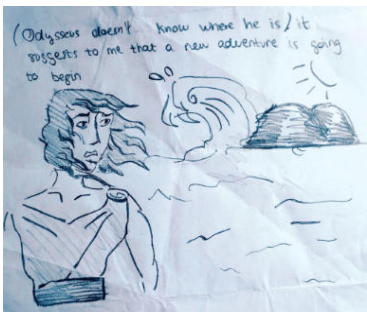 (Odysseus doesn't know where he is / it
suggests to me that a new adventure is going
to begin